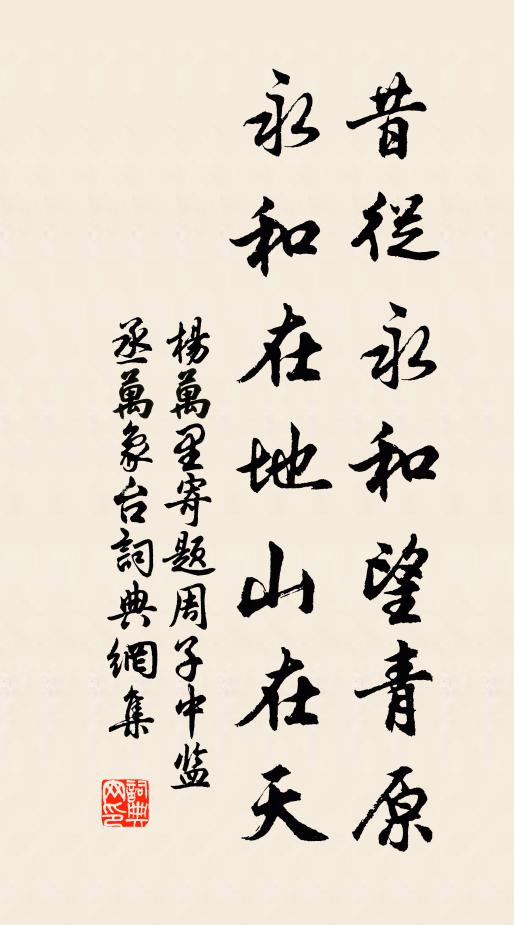 昔從永和望青原
永和在地山在天
楊萬里寄題周子中监
丞萬象台詞典網集
詞典网印